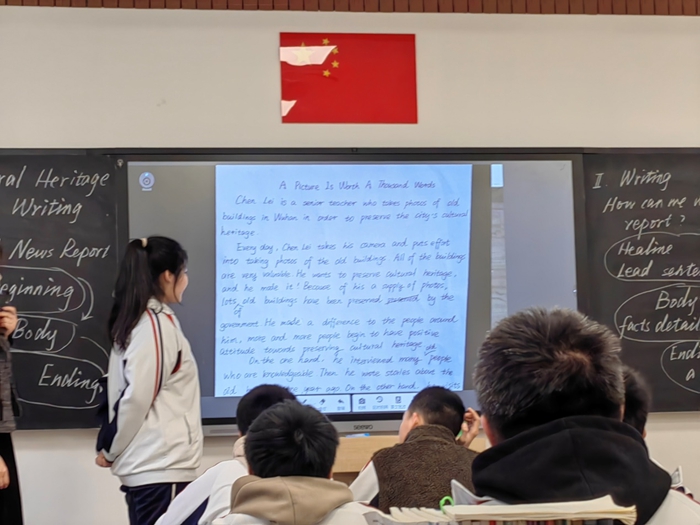 ral Heritage
Writing
News Report
Beginning
Body
Ending
A Picture Is Worth A Thousand Words
Chen Lei is a senior teacher who takes photos of old
buildings in Wuhan in order to preserve the city's cultural
heritage.
Every day, Chen Lei takes his camera and puts effort
into taking photos of the old buildings. All of the buildings
are very valuable. He wants to preserve cultural heritage,
and he make it! Because of his a supply of photos,
lots of old buildings have been preserved by the
government. He made a difference to the people around
him, more and more people begin to have positive
attitude towards preserving cultural heritage
On the one hand, he interviewed many people
who are knowledgeable. Then he wrote stories about the
old years ago. On the other hand,
II Writing
How can we
report?
Healine
Lead
Body
facts detail
End
a